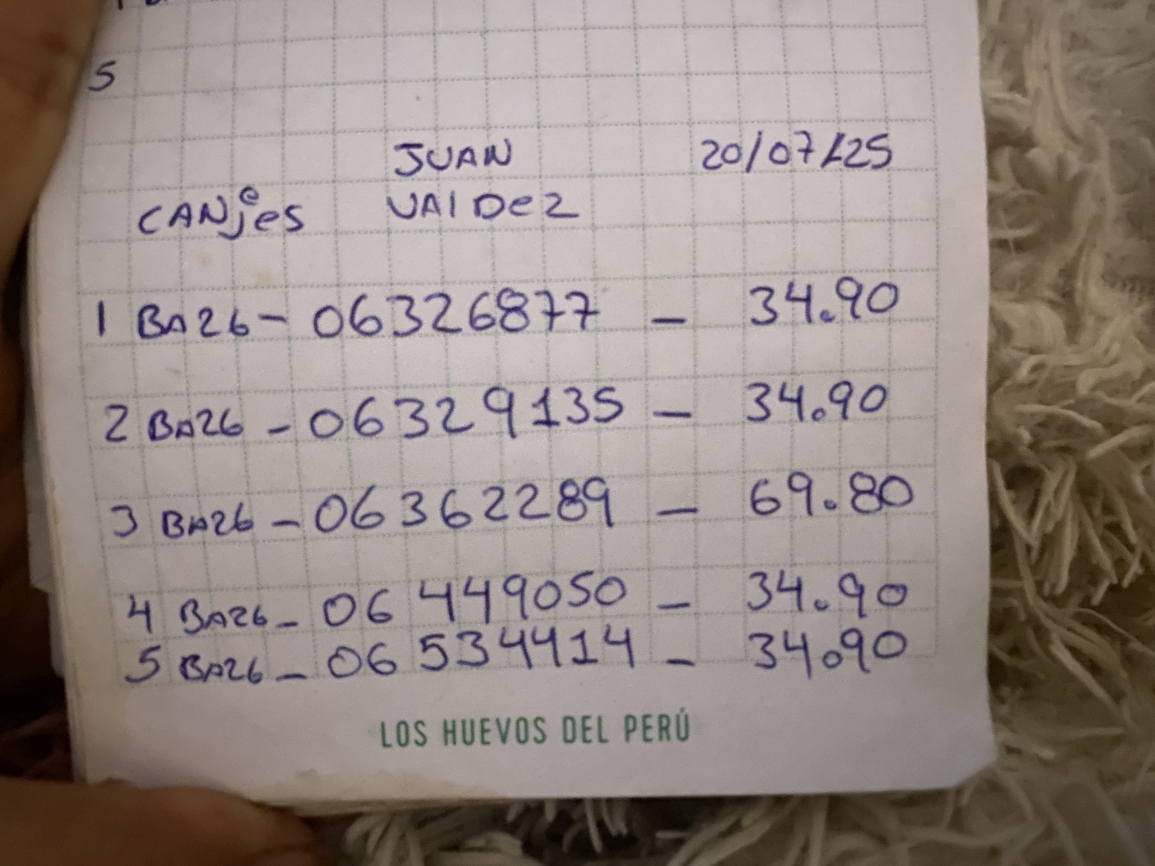 5
JUAN 20/07/25
CANjes VAlDez
1 BA26 - 06326877 - 34.90
2 BA26 - 06329135 - 34.90
3 BA26 - 06362289 - 69.80
4 BA26 - 06449050 - 34.90
5 BA26 - 06534414 - 34.90
LOS HUEVOS DEL PERÚ